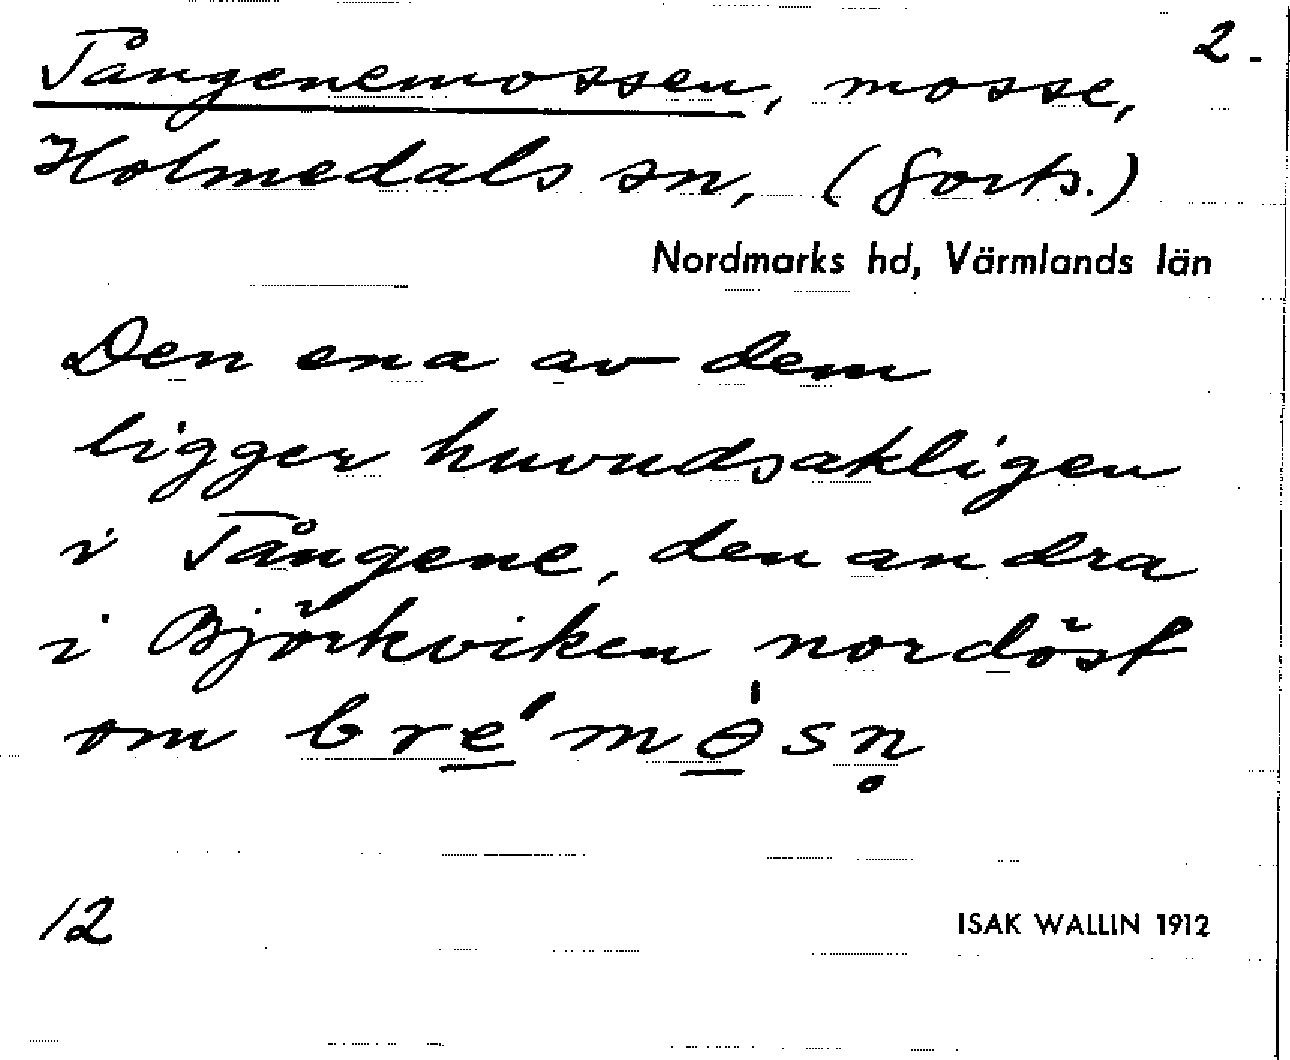 2.
Tångenemossen, mosse,
Holmedals sn, (forts.)
Nordmarks hd, Värmlands län
Den ena av dem
ligger huvudsakligen
i Tångene, den andra
i Björkviken nordöst
om bre̲´mɵ̲̍sn̥
12
ISAK WALLIN 1912